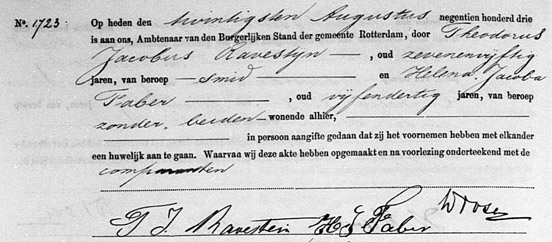 No. 1723. Op heden den twintigsten Augustus negentien honderd drie
is aan ons, Ambtenaar van den Burgerlijken Stand der gemeente Rotterdam, door Theodorus
Jacobus Ravestyn, oud zevenenvijftig
jaren, van beroep smid en Helena Jacoba
Faber, oud vijfendertig jaren, van beroep
zonder, beiden wonende alhier,
in persoon aangifte gedaan dat zij het voornemen hebben met elkander
een huwelijk aan te gaan. Waarvan wij deze akte hebben opgemaakt en na voorlezing onderteekend met de
comparanten
T J Ravestein H J Faber